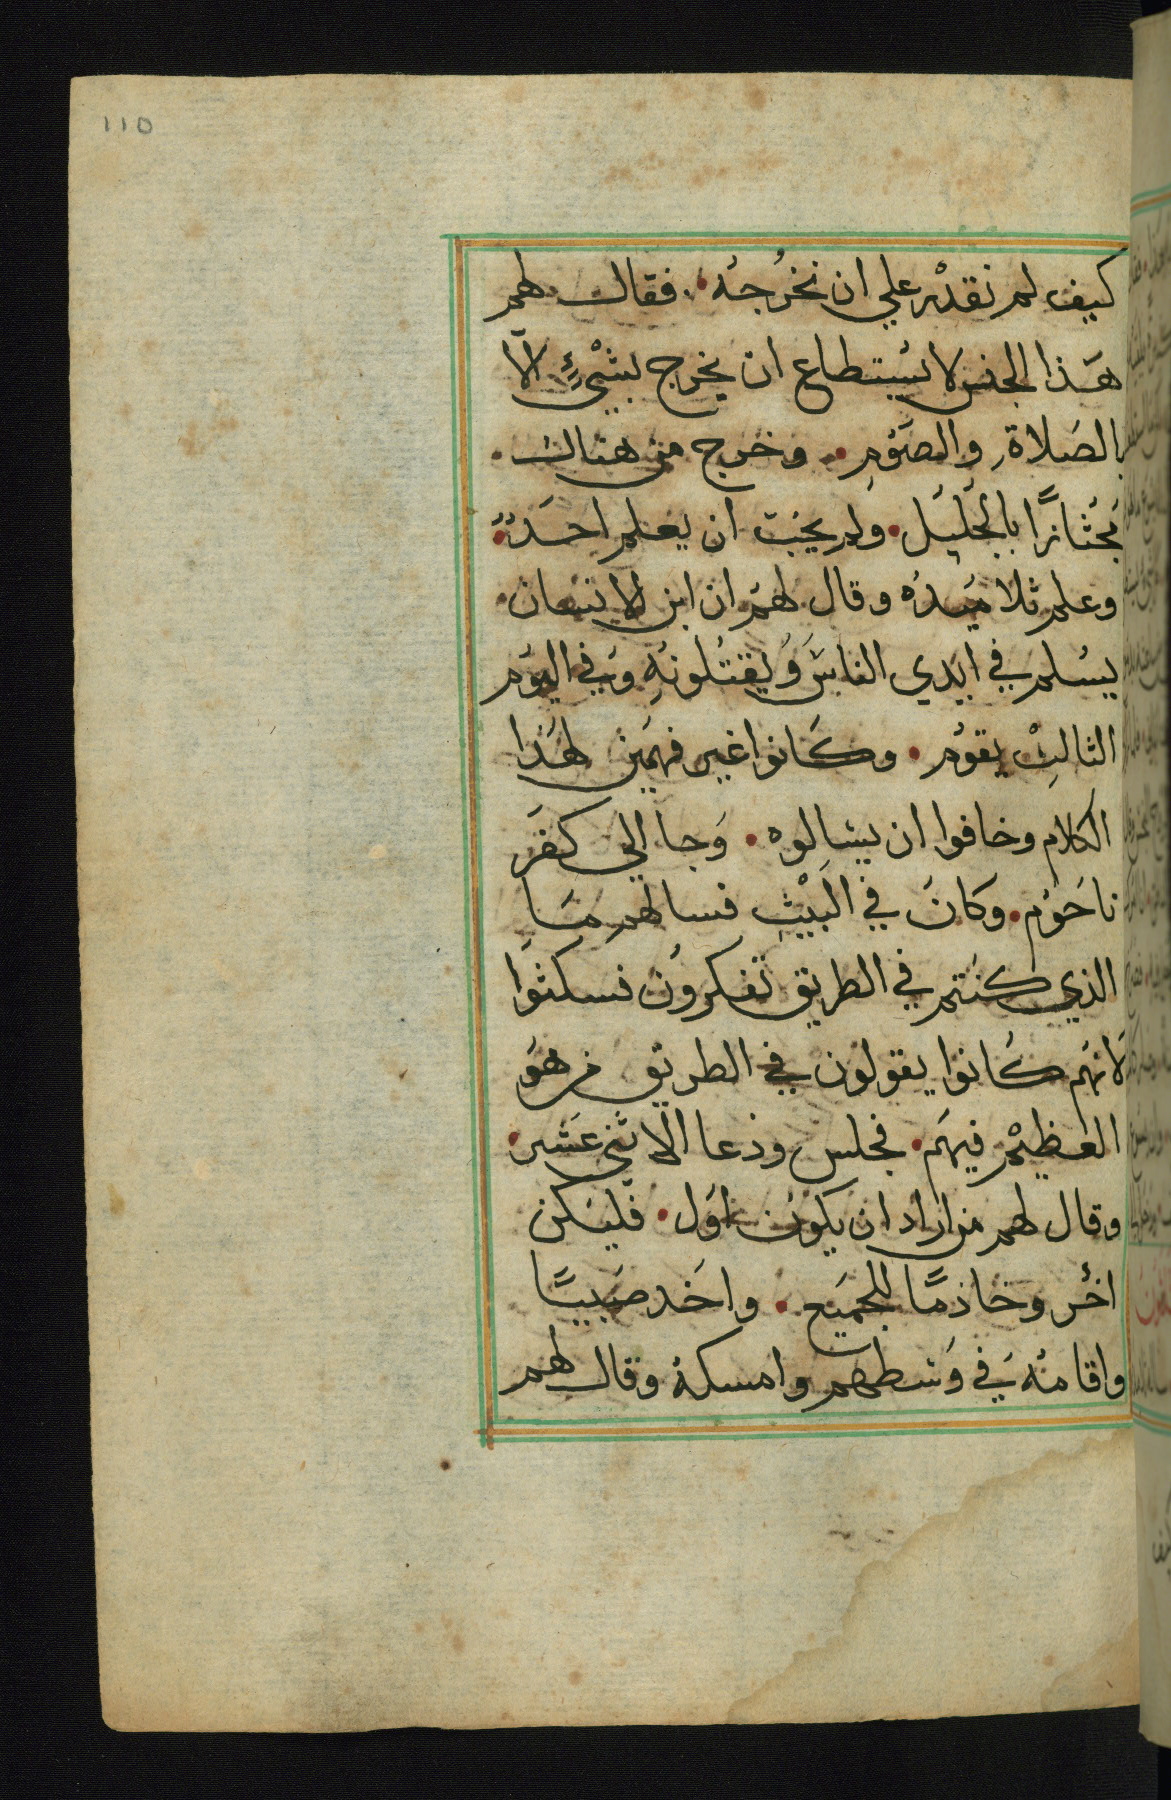 110
كيف لم نقدر علي ان نخرجه. فقال لهم
هذا الجنس لا يستطاع ان يخرج بشيء الا
بالصلاة والصوم. وخرج من هناك.
مجتازا بالجليل. ولم يحب ان يعلم احد.
وعلم تلاميده وقال لهم ان ابن الانسان.
يسلم في ايدي الناس ويقتلونه وفي اليوم
الثالث يقوم. وكانوا غير فهمين لهدا
الكلام وخافوا ان يسالوه. وجا الي كفر
ناحوم. وكان في البيت فسالهم ما
الذي كنتم في الطريق تفكرون فسكتوا
لانهم كانوا يقولون في الطريق من هو
العظيم فيهم. فجلس ودعا الاثني عشر.
وقال لهم من اراد ان يكون اول. فليكن
اخر وخادما للجميع. واخد صبيا
واقامه في وسطهم وامسكه وقال لهم